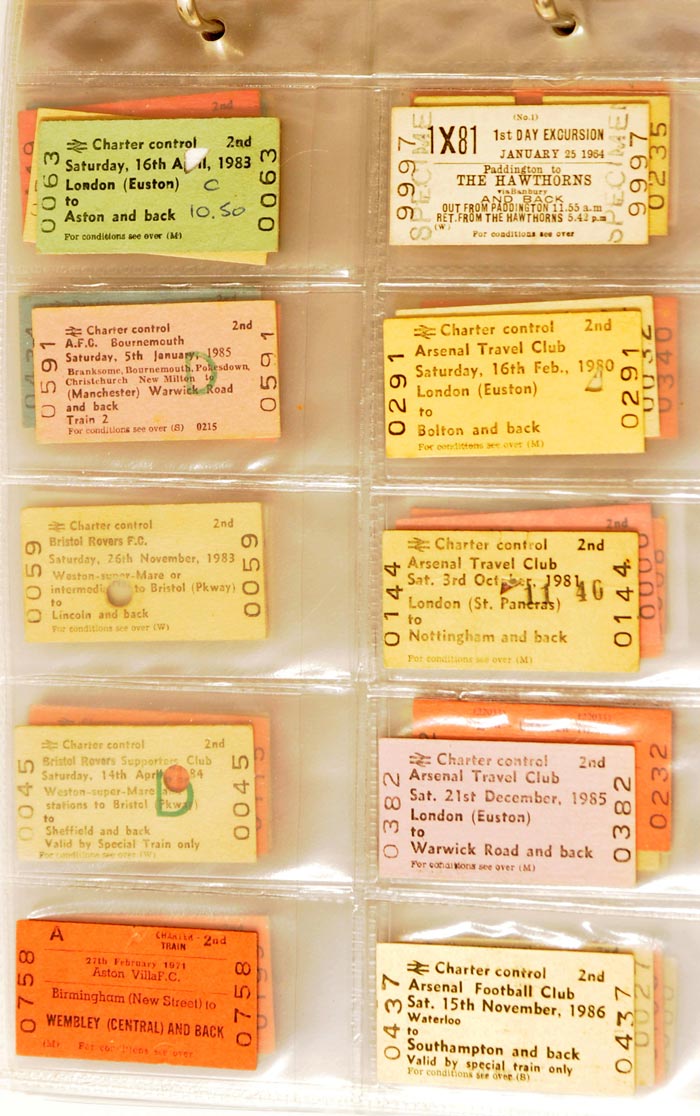 2nd
Charter control 2nd
Saturday, 16th April, 1983
London (Euston) C
to 10.50
Aston and back
For conditions see over (M)
0063
0063
(No.1)
1X81 1st DAY EXCURSION
JANUARY 25 1964
Paddington to
THE HAWTHORNS
via Banbury
AND BACK
OUT FROM PADDINGTON 11.55 a.m
RET. FROM THE HAWTHORNS 5.42 p.m
(W) For conditions see over
9997
9997
SPECIMEN
SPECIMEN
0235
Charter control 2nd
A.F.C. Bournemouth
Saturday, 5th January, 1985
Branksome, Bournemouth, Pokesdown,
Christchurch New Milton to
(Manchester) Warwick Road
and back
Train 2
For conditions see over (S) 0215
0591
0591
D
Charter control 2nd
Arsenal Travel Club
Saturday, 16th Feb., 1980
London (Euston)
to
Bolton and back
For conditions see over (M)
0291
0291
0032
0340
Charter control 2nd
Bristol Rovers F.C.
Saturday, 26th November, 1983
Weston-super-Mare or
to Bristol (Pkway)
to
Lincoln and back
For conditions see over (W)
0059
0059
2nd
Charter control 2nd
Arsenal Travel Club
Sat. 3rd October, 1981
11 40
London (St. Pancras)
to
Nottingham and back
For conditions see over (M)
0144
0144
Charter control 2nd
Bristol Rovers Supporters Club
Saturday, 14th April 84
Weston-super-Mare
stations to Bristol (Pkway)
to
Sheffield and back
Valid by Special Train only
For conditions see over (W)
0045
0045
D
Charter control 2nd
Arsenal Travel Club
Sat. 21st December, 1985
London (Euston)
to
Warwick Road and back
For conditions see over (M)
0382
0382
0232
A CHARTER - 2nd
TRAIN
27th February 1971
Aston VillaF.C.
Birmingham (New Street) to
WEMBLEY (CENTRAL) AND BACK
(M) For conditions see over
0758
0758
Charter control 2nd
Arsenal Football Club
Sat. 15th November, 1986
Waterloo
to
Southampton and back
Valid by special train only
For conditions see over (S)
0437
0437